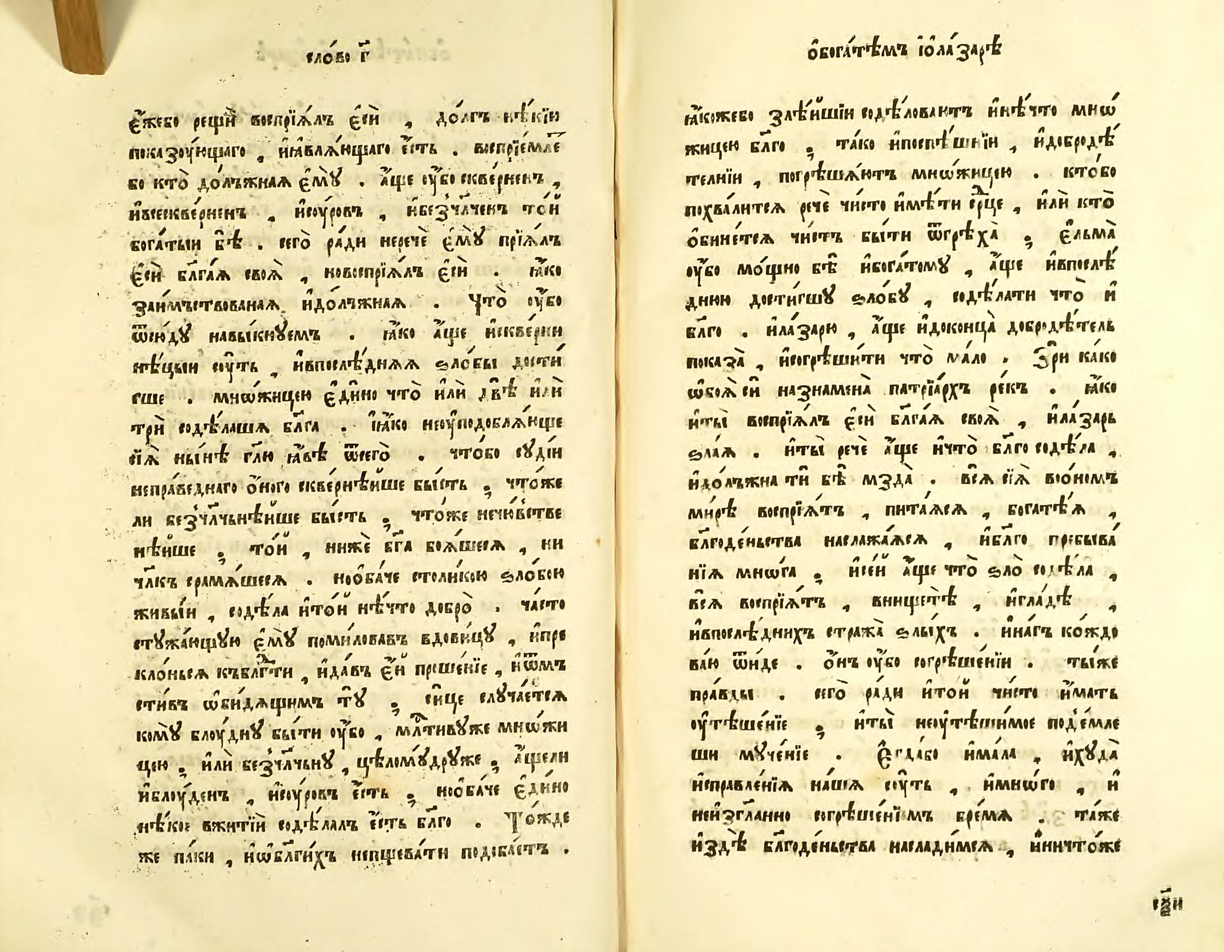 сло́во г҃
є҆́жебо рещѝ воспрїѧ́лъ є҆сѝ , до́лгъ нѣ́кїи
показꙋ́ющаго , и҆ꙗ҆влѧ́ющаго є҆́сть . воспрїе́мле
бо кто̀ до́лъжнаѧ є҆мꙋ̀ . а҆́ще ᲂу҆́бо скве́рненъ ,
и҆всескве́рненъ , и҆сᲂу́ровъ , и҆беꙁ̾ча́лченъ то́и
бога́тыи бѣ̀ . сего̀ ра́ди неречѐ є҆мꙋ̀ прїѧ́лъ
є҆сѝ бл҃га́ѧ своѧ̀ , новоспрїѧ́лъ є҆сѝ . ꙗ҆́ко
заи́мъствованаѧ и҆до́лжнаѧ . Что̀ ᲂу҆́бо
ѿсю́дꙋ навы́кнꙋемъ . ꙗ҆́ко а҆́ще и҆скве́рни
нѣ́цыи сᲂу́ть , и҆впослѣ́днѧѧ ѕло́бы дости́
гше . мно́жицею є҆ди́но что̀ и҆лѝ двѣ̀ и҆лѝ
трѝ содѣ́лашѧ бл҃га . ꙗ҆́ко неᲂу҆подоблѧ́юще
сїѧ̀ ны́нѣ гл҃ю ꙗ҆́вѣ ѿсего̀ . что́бо сꙋдїѝ
непра́веднаго ѻ҆́ного скве́рнѣише бы́сть ; что́же
ли беꙁ̾ча́лчьнѣише бы́сть ; что́же нечю́встве
нѣ́ише ; то́и , нижѐ бг҃а боѧ́шесѧ , ни
чл҃къ срамѧ́шесѧ . но́ѻ҆ба́че столи́кою ѕло́бою
живы́и , содѣ́ла и҆то́и нѣ́что добро̀ . ча́сто
стꙋжа́ющꙋю є҆мꙋ̀ поми́ловавъ вдови́цꙋ , и҆пре
кло́ньсѧ къбл҃гти , и҆да́въ є҆́и проше́нїе , и҆ѿмъ
сти́въ ѡ҆би́дѧщимъ тꙋ̀ ; си́це слꙋча́етсѧ
комꙋ̀ блᲂу́днꙋ бы́ти ᲂу҆́бо , млⷭ҇тивꙋже мно́жи
цею ; и҆лѝ беꙁ̾ча́лчьнꙋ , цѣломꙋ́друже ; а҆́щели
и҆блᲂу́денъ , и҆сᲂу́ровъ є҆́сть ; но́ѻ҆ба́че є҆ди́но
нѣ́кое вжитїѝ содѣ́лалъ є҆́сть бл҃го . То́жде
же па́ки , и҆ѡ҆бл҃ги́хъ непщева́ти подоба́етъ .
ѻ҆бога́тѣмъ и҆ѻ҆ла́зарѣ
ꙗ҆́кожебо ѕлѣ́ишїи содѣ́ловаютъ и҆нѣ́что мно́
жицею бл҃го ; та́ко и҆поспѣ́шнїи , и҆добродѣ́
телнїи , погрѣша́ютъ мно́жицею . кто́бо
похва́литсѧ речѐ чи́сто и҆мѣ́ти срⷣце , и҆лѝ кто̀
ѻ҆бине́тсѧ чи́стъ бы́ти ѿгрѣха̀ ; є҆льма̀
ᲂу҆́бо мо́щно бѣ̀ и҆бога́томꙋ , а҆́ще и҆впослѣ́
днюю дости́гшꙋ ѕло́бꙋ , содѣ́лати что̀ и҆
бл҃го . и҆ла́зарю , а҆́ще и҆доконца̀ добродѣ́тель
показа̀ , и҆согрѣши́ти что̀ ма́ло . Зрѝ ка́ко
ѡ҆боѧ̀ сѝ назнамена̀ патрїа́рхъ ре́къ . ꙗ҆́ко
и҆ты̀ воспрїѧ́лъ є҆сѝ бл҃га́ѧ своѧ̀ , и҆ла́зарь
ѕла́ѧ . и҆ты̀ речѐ а҆́ще и҆что̀ бл҃го содѣ́ла ,
и҆до́лъжна тѝ бѣ̀ мзда̀ . всѧ̀ сїѧ̀ во́ѻномъ
ми́рѣ воспрїѧ́тъ , пита́ѧсѧ , богатѣ́ѧ ,
бл҃годе́ньства наслажа́ѧсѧ , и҆бл҃го пребыва́
нїѧ мно́га ; и҆се́и а҆́ще что̀ ѕло̀ содѣ́ла ,
всѧ̀ воспрїѧ́тъ , внищетѣ̀ , и҆гла́дѣ ,
и҆впослѣ́днихъ стража̀ ѕлы́хъ . и҆на́гъ ко́ждо
ва́ю ѿи́де . ѻ҆́нъ ᲂу҆́бо согрѣше́нїи . ты́же
пра́вды . сего̀ ра́ди и҆то́и чи́сто и҆́мать
ᲂу҆тѣше́нїе ; и҆ты̀ неᲂу҆тѣши́мое под̾е́мле
ши мꙋче́нїе . Є҆гда́бо и҆ма́ла , и҆хꙋда̀
и҆справле́нїѧ на́шѧ сᲂу́ть , и҆мно́го , и҆
неизгл҃анно согрѣше́нїимъ бре́мѧ . та́же
и҆здѣ̀ бл҃годе́ньства наслади́мсѧ , и҆ничто́же